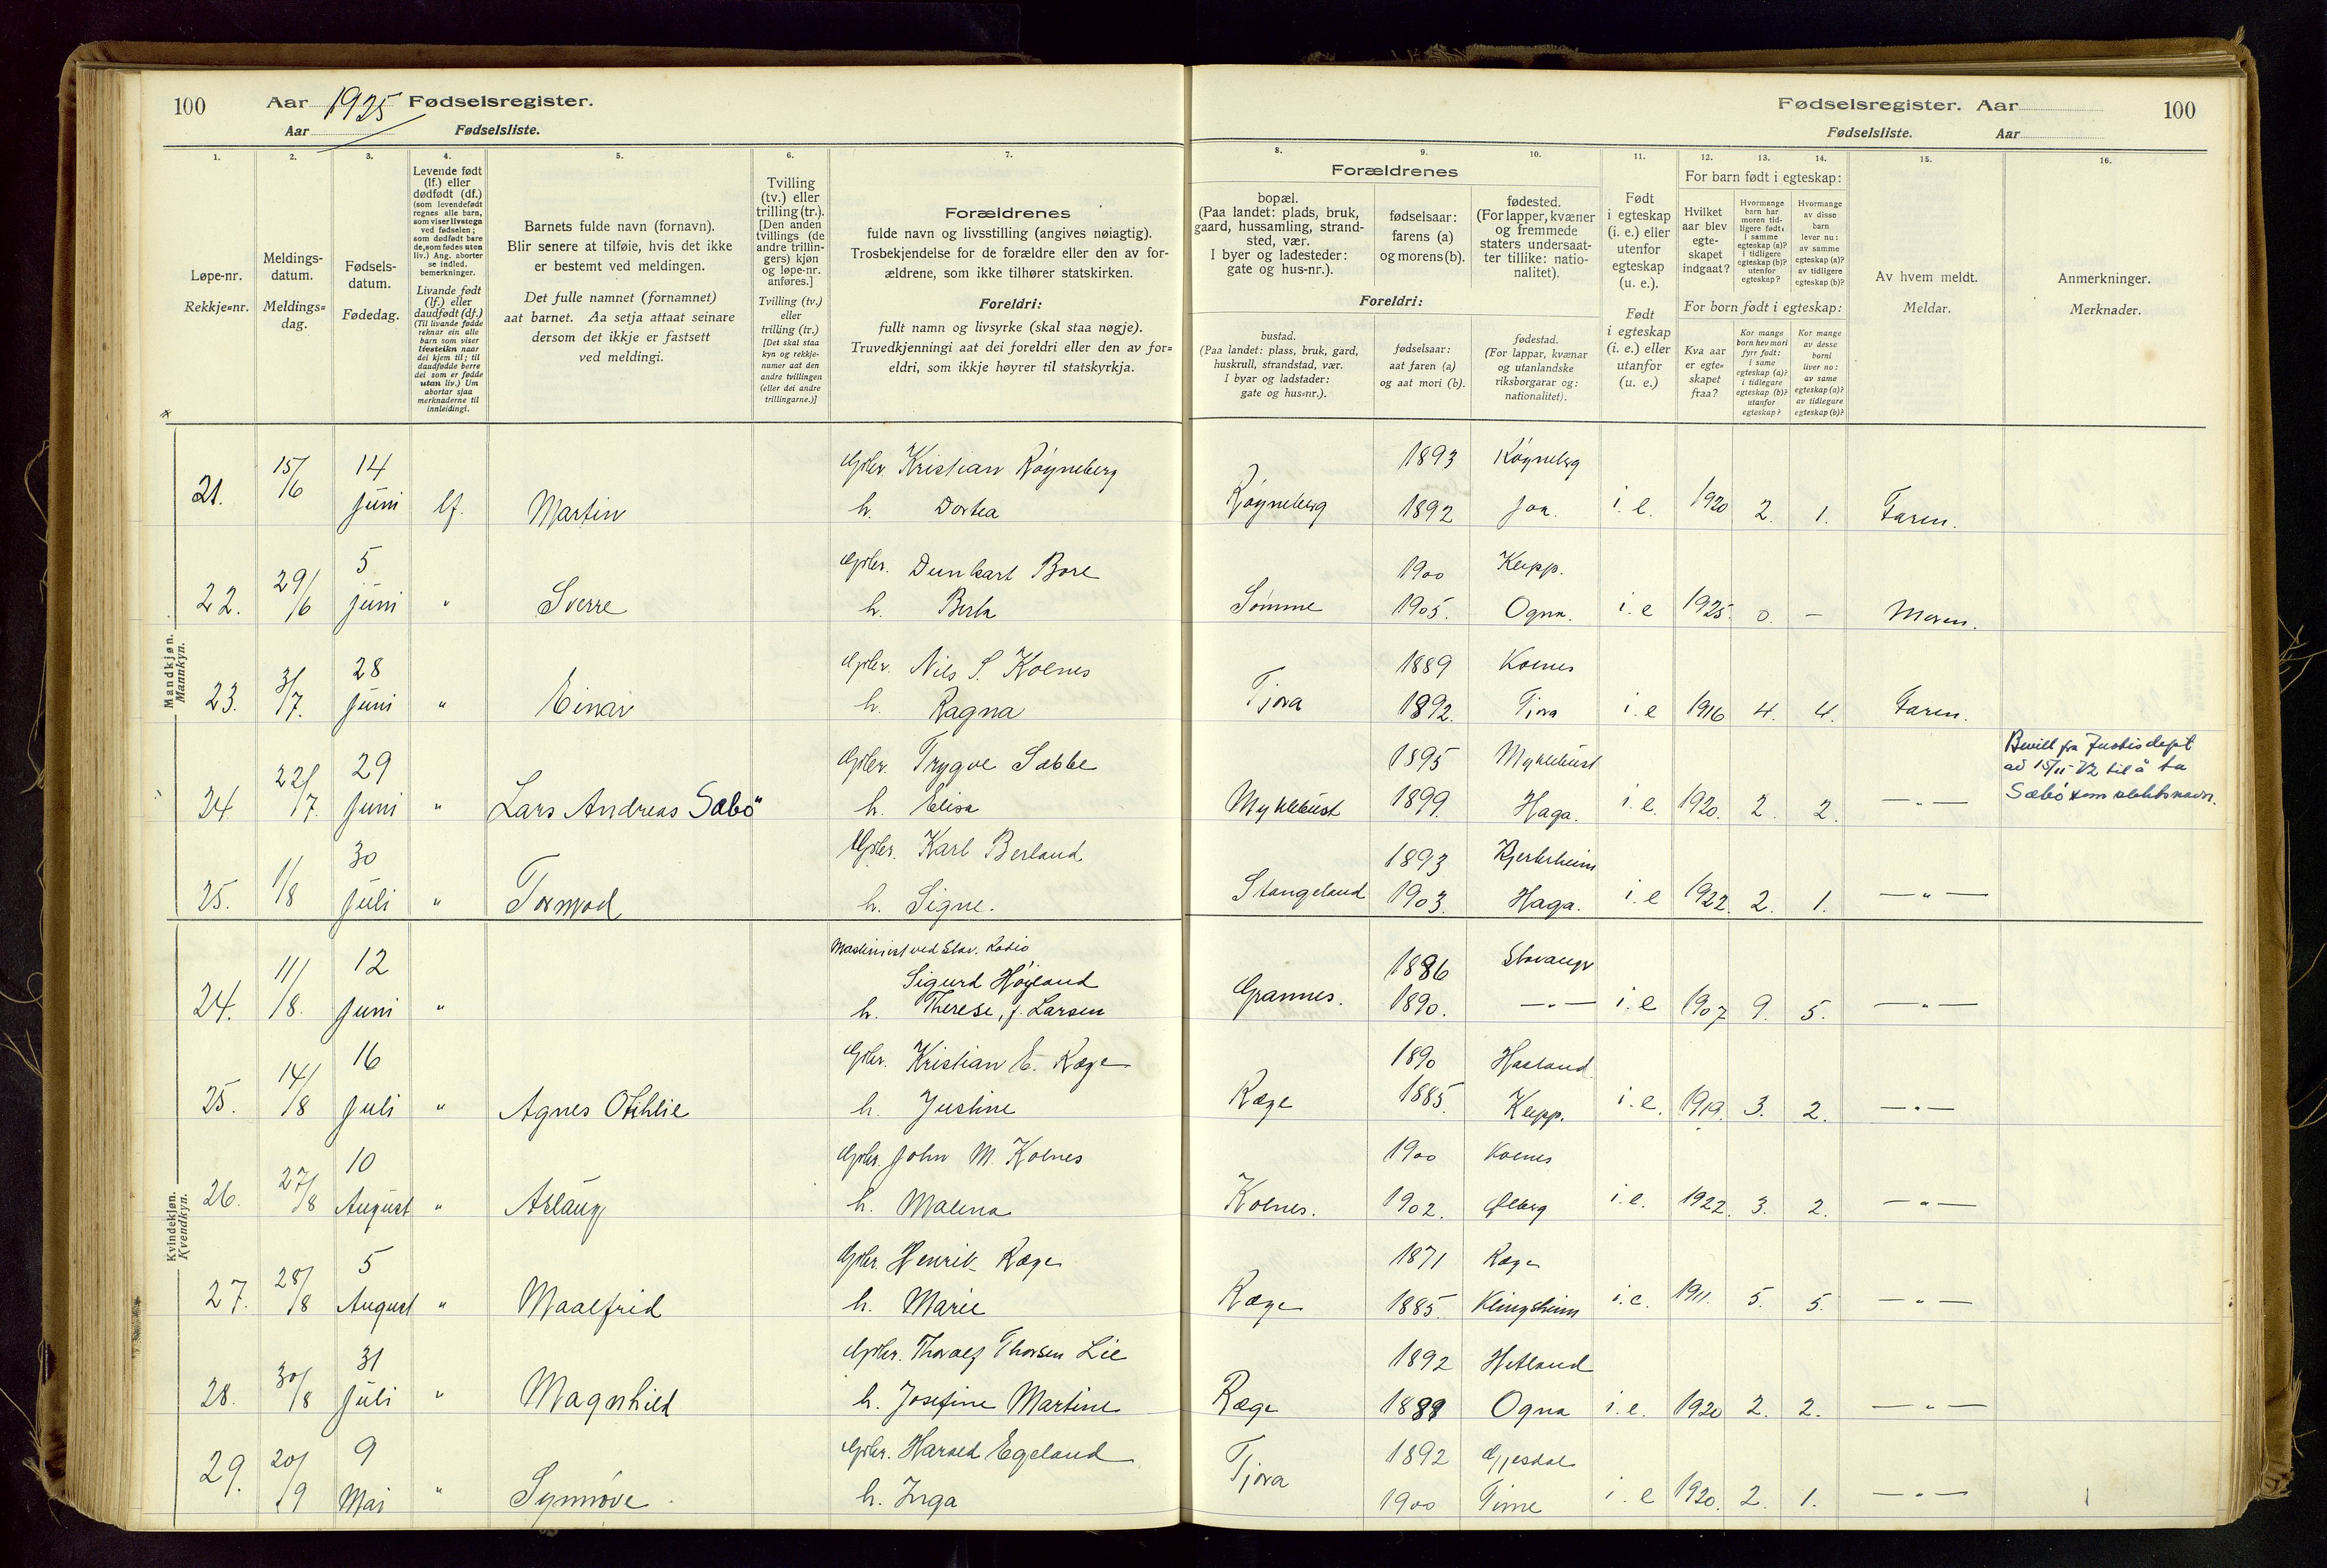 100 Aar 1925 Fødselsregister.
Aar Fødselsliste.
Fødselsregister. Aar 100
Fødselsliste. Aar
1. 2. 3. 4. 5. 6. 7. 8. 9. 10. 11. 12. 13. 14. 15. 16.
Løpe-nr.
Rekkje=nr.
Meldings-
datum.
Meldings=
dag.
Fødsels-
datum.
Fødedag.
Levende født
(lf.) eller
dødfødt (df.)
(som levendefødt
regnes alle barn,
som viser livstegn
ved fødselen;
som dødfødt bare
de, som fødes uten
liv.) Ang. aborter
se indled.
bemerkninger.
Livande fødd
(lf.) eller
daudfødt (df.)
(Til livande fødde
reknar ein alle
barn som viser
livsteikn naar
dei kjem til; til
daudfødde berre
dei som er fødde
utan liv.) Um
abortar sjaa
merknaderne til
innleidingi.
Barnets fulde navn (fornavn).
Blir senere at tilføie, hvis det ikke
er bestemt ved meldingen.
Det fulle namnet (fornamnet)
aat barnet. Aa setja attaat seinare
dersom det ikkje er fastsett
ved meldingi.
Tvilling
(tv.) eller
trilling (tr.).
[Den anden
tvillings (de
andre trillin-
gers) kjøn
og løpe-nr.
anføres.]
Tvilling (tv.)
eller
trilling (tr.)
[Det skal staa
kyn og rekkje-
numer aat den
andre tvillingen
(eller dei andre
trillingarne.)]
Forældrenes
fulde navn og livsstilling (angives nøiagtig).
Trosbekjendelse for de forældre eller den av for-
ældrene, som ikke tilhører statskirken.
Foreldri:
fullt namn og livsyrke (skal staa nøgje).
Truvedkjenningi aat dei foreldri eller den av for=
eldri, som ikkje høyrer til statskyrkja.
Forældrenes
bopæl.
(Paa landet: plads, bruk,
gaard, hussamling, strand-
sted, vær.
I byer og ladesteder:
gate og hus-nr.).
fødselsaar:
farens (a)
og morens (b).
fødested.
(For lapper, kvæner
og fremmede
staters undersaat-
ter tillike: natio-
nalitet).
Foreldri:
bustad.
(Paa landet: plass, bruk, gard,
huskrull, strandstad, vær.
I byar og ladstader:
gate og hus=nr.).
fødselsaar:
aat faren (a)
og aat mori (b).
fødestad.
(For lappar, kvænar
og utanlandske
riksborgarar og:
nationalitet).
Født
i egteskap
(i. e.) eller
utenfor
egteskap
(u. e.).
Født
i egteskap
(i. e.) eller
utanfor
(u. e.)
For barn født i egteskap:
Hvilket
aar blev
egte-
skapet
indgaat?
Hvormange
barn har
moren tid-
ligere født:
i samme
egteskap (a)?
i tidligere
egteskap (b)?
utenfor
egteskap?
Hvormange
av disse
barn
lever nu:
av samme
egteskap (a)?
av tidligere
egteskap (b)?
For born født i egteskap:
Kva aar
er egte=
skapet
fraa?
Kor mange
born hev mori
fyrr født:
i same
egteskap (a)?
i tidlegare
egteskap (b)?
utanfor
egteskap?
Kor mange
av desse
borni
liver no:
av same
egteskap (a)?
av tidlegare
egteskap (b)?
Av hvem meldt.
Meldar.
Anmerkninger.
Merknader.
Mandkjøn.
Mannkyn.
21. 15/6 14 Juni lf. Martin Gbr. Kristian Røyneberg Røyneberg 1893 Røyneberg
h. Dortea 1892 Joa. i. e. 1920 2. 1. Faren.
22. 29/6 5 Juni " Sverre Gbr. Dunkart Bore Sømme 1900 Klepp.
h. Berta 1905. Ogna. i. e 1925. 0. — Moren.
23. 3/7. 28 Juni " Einar Gbr. Nils S. Kolnes Tjora 1889 Kolnes
h. Ragna 1892. Tjora i. e 1916 4. 4. Faren.
24. 22/7. 29 Juni " Lars Andreas Sæbö" Gbr. Trygve Sæbbe Myklebust 1895 Myklebust
h. Elisa 1899. Haga. i. e. 1920. 2. 2. —„—
Bevill fra Justisdept
av 15/11-72 til å ta
Sæbö som slektsnavn.
25. 1/8 30 Juli " Tormod Gbr. Karl Berland Stangeland 1893 Bjerkreim
h. Signe. 1903. Haga. i. e 1922. 2. 1. —„—
Kvindekjøn.
Kvendkyn.
24. 11/8. 12 Juni " Maskinist ved Stav. Radio
Sigurd Høyland Grannes. 1886 Stavanger
h. Therese, f. Larsen 1890. —„— i. e 1907 9. 5. —„—
25. 14/8 16 Juli " Agnes Othilie Gbr. Kristian E. Ræge Ræge 1890 Haaland
h. Justine 1885. Klepp. i. e. 1919. 3. 2. —„—
26. 27/8 10 August " Aslaug Gbr. John M. Kolnes Kolnes. 1900 Kolnes
h. Malena 1902. Ølberg i. e. 1922. 3. 2. —„—
27. 28/8 5 August " Maalfrid Gbr. Henrik Ræge Ræge 1871 Ræge
h. Marie 1885. Klingsheim i. e. 1911. 5. 5. —„—
28. 30/8 31 Juli " Magnhild Gbr. Thoralf Thorsen Lie Ræge 1892 Hetland
h. Josefine Martine 1889 Ogna i. e. 1920 2. 2. —„—
29. 20/9 9 Mai " Synnøve Gbr. Harald Egeland Tjora 1892 Gjesdal
h. Inga 1900 Time i. e 1920. 2. 1. —„—